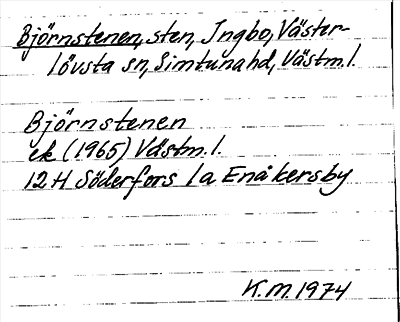 Björnstenen, sten, Ingbo, Väster-
lövsta sn, Simtuna hd, Västm. l.
Björnstenen
ek (1965) Västm. l.
12H Söderfors 1a Enåkersby
K.M. 1974